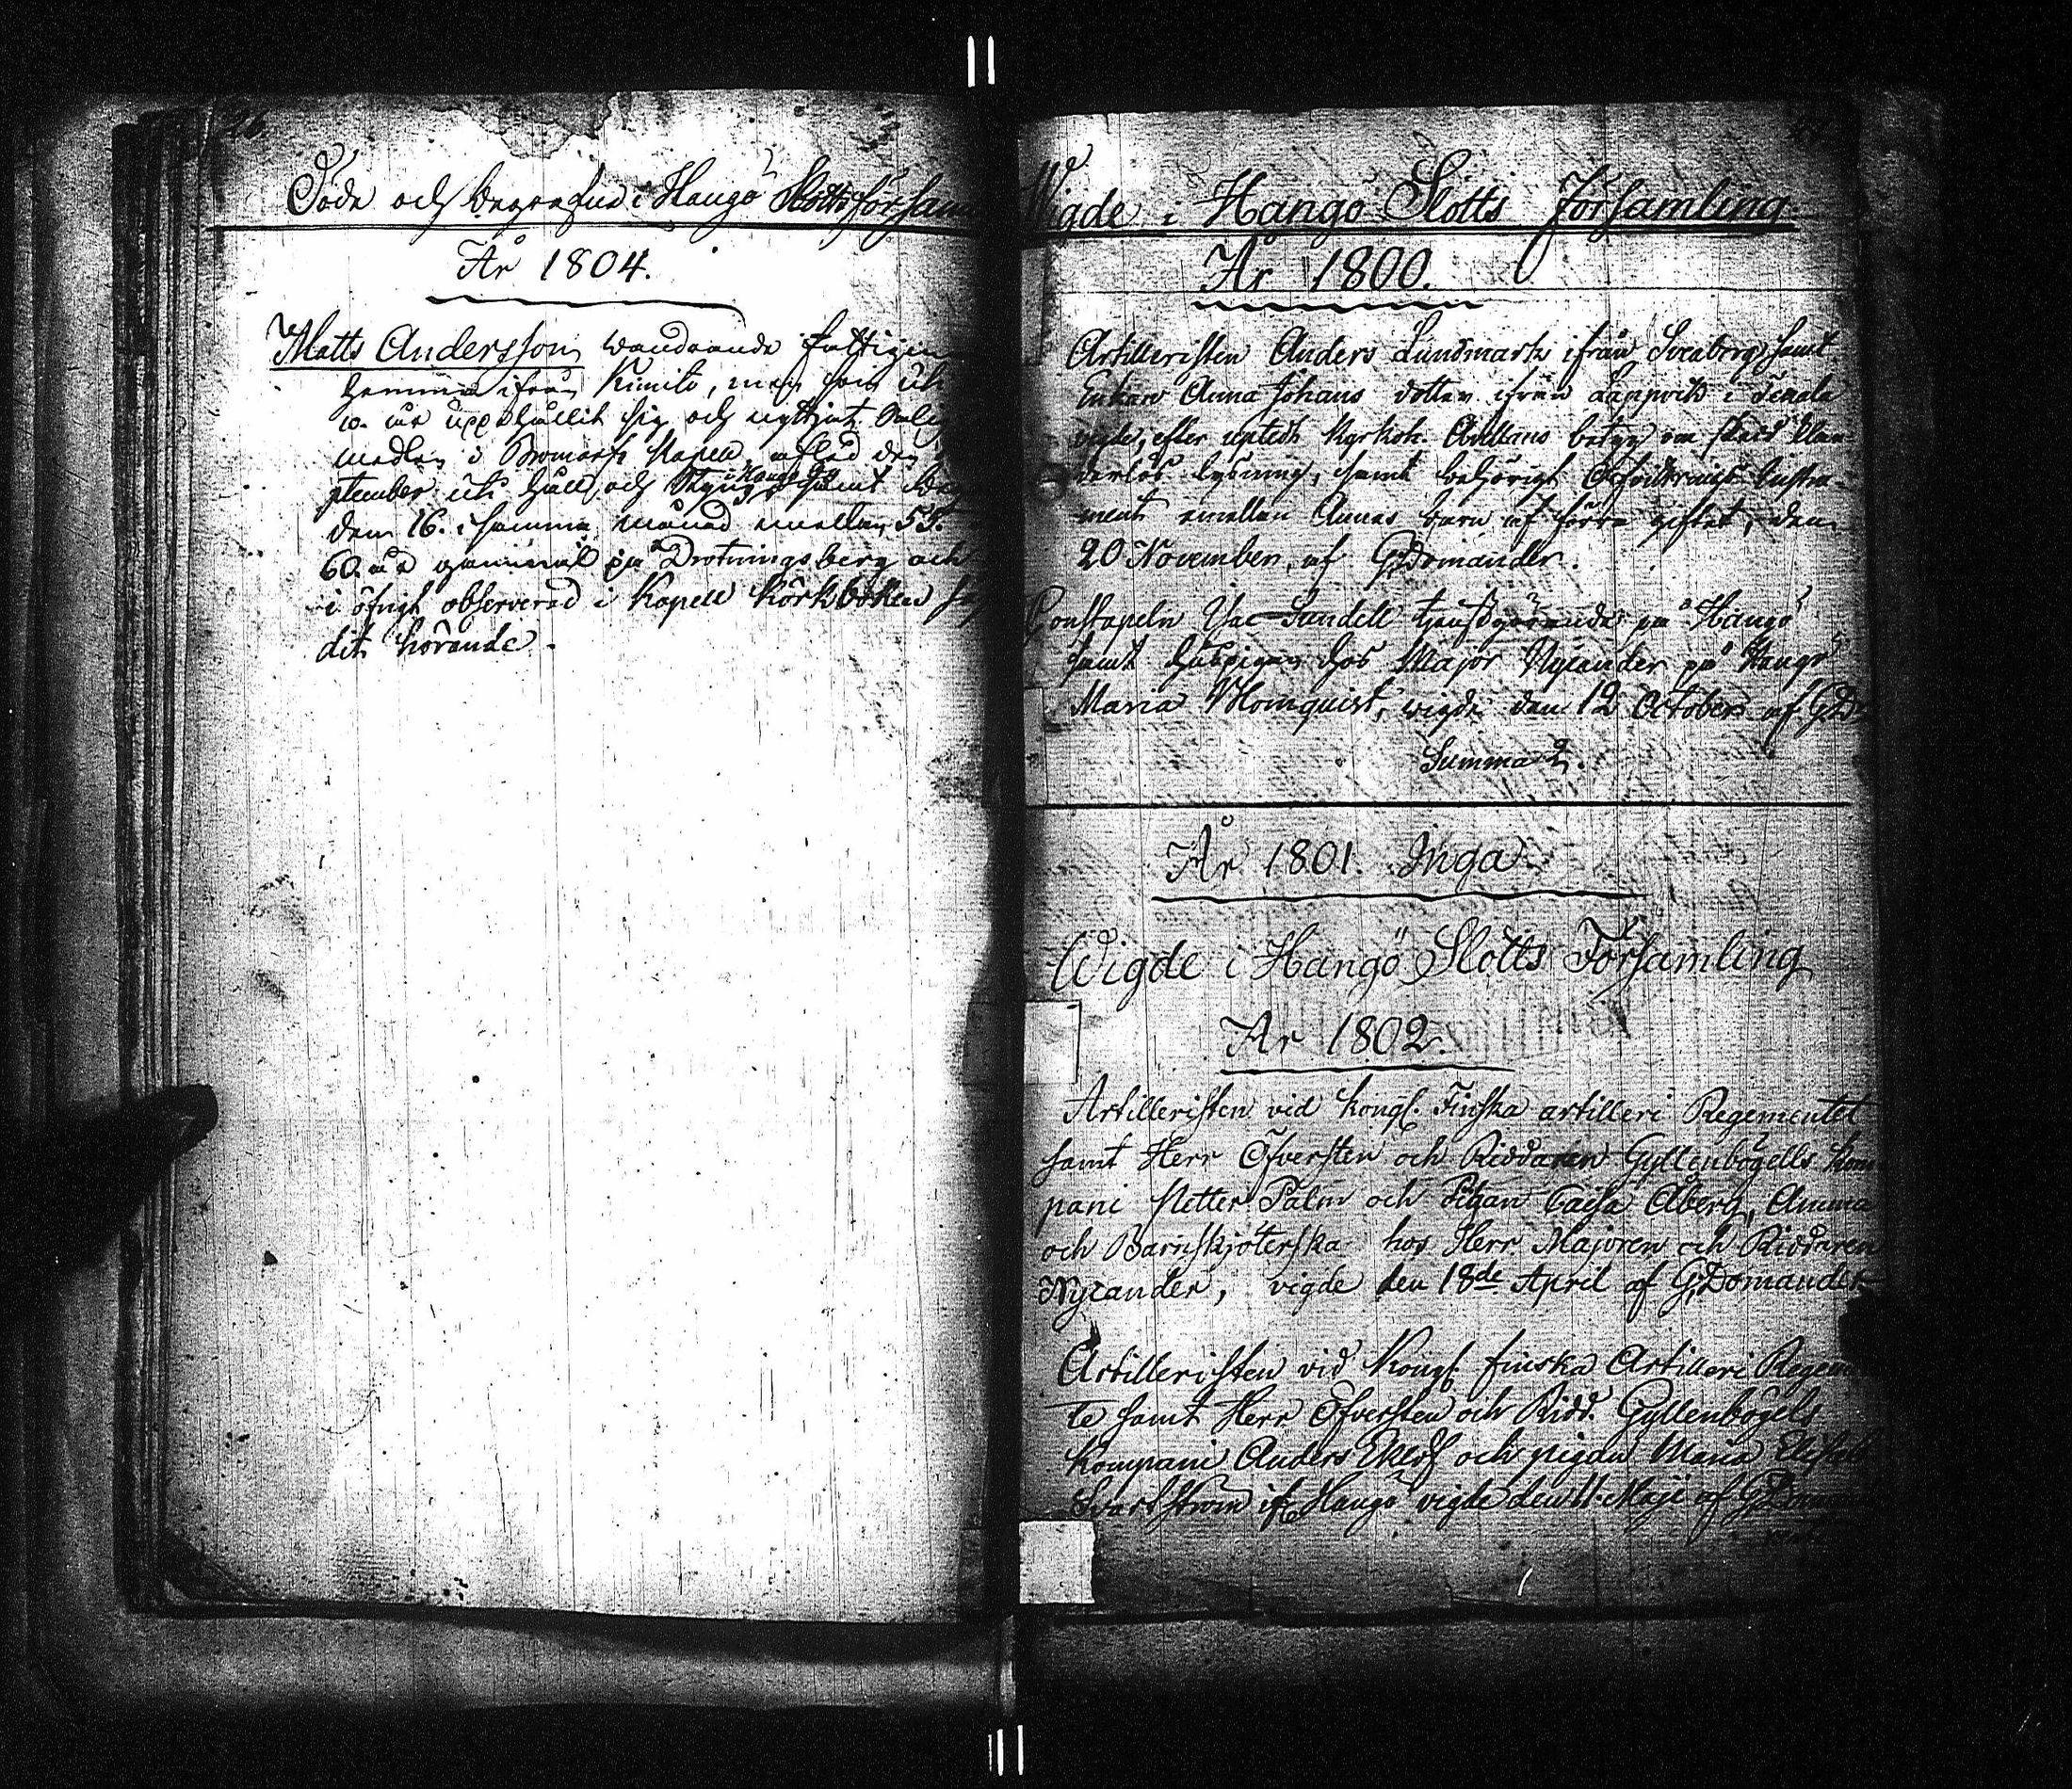 26
Döde och begrafne i Hangö Slotts Försam
År 1804.
Matts Andersson, wandrande fattigm
hemma ifrån Kimito, men som uti
10. år uppehållit sig och nyttjat
medlen i Bromarfs Kapell, afled den
ptember uti håll och Styng i Hangö samt begr
dem 16. i samma månad emellan 55.
60. år gammal på Drotningsberg och
i öfrigt observerad i Kapell Körkboken
dit hörande.
Wigde i Hangö Slotts Församling.
År 1800.
Artilleristen Anders Lundmark ifrån Sveaborg samt
Enkan Anna Johans dotter ifrån Lappvik i Tenala
vigde, efter uptedt Kyrkoh. Avellans betyg om skedd klan-
derlös lysning, samt behörigt Afvittrings Instru-
ment emellan Annas barn af förra giftet, den
20 November, af G. Domander.
Constapeln Isac Sundell tjenstgörande på Hangö
samt Huspigan hos Major Nycander på Hangö
Maria Blomquist, vigde den 12 October af G. D.
Summa 2.
År 1801. Inga
Wigde i Hangö Slotts Församling
År 1802.
Artilleristen vid Kongl. Finska artilleri Regementet
samt Herr Öfversten och Riddaren Gyllenbögells Kom
pani Petter Palm och Pigan Caisa Åberg, Amma
och Barnskjöterska hos Herr Majoren och Riddaren
Nycander, vigde den 18de April af G. Domander
Artilleristen vid Kongl. finska Artilleri Regem
te samt Herr Öfversten och Ridd. Gyllenbögels
Kompani Anders Eklöf och pigan Maria
Svartström ifr Hangö vigde den 11. Maji af G. Doman